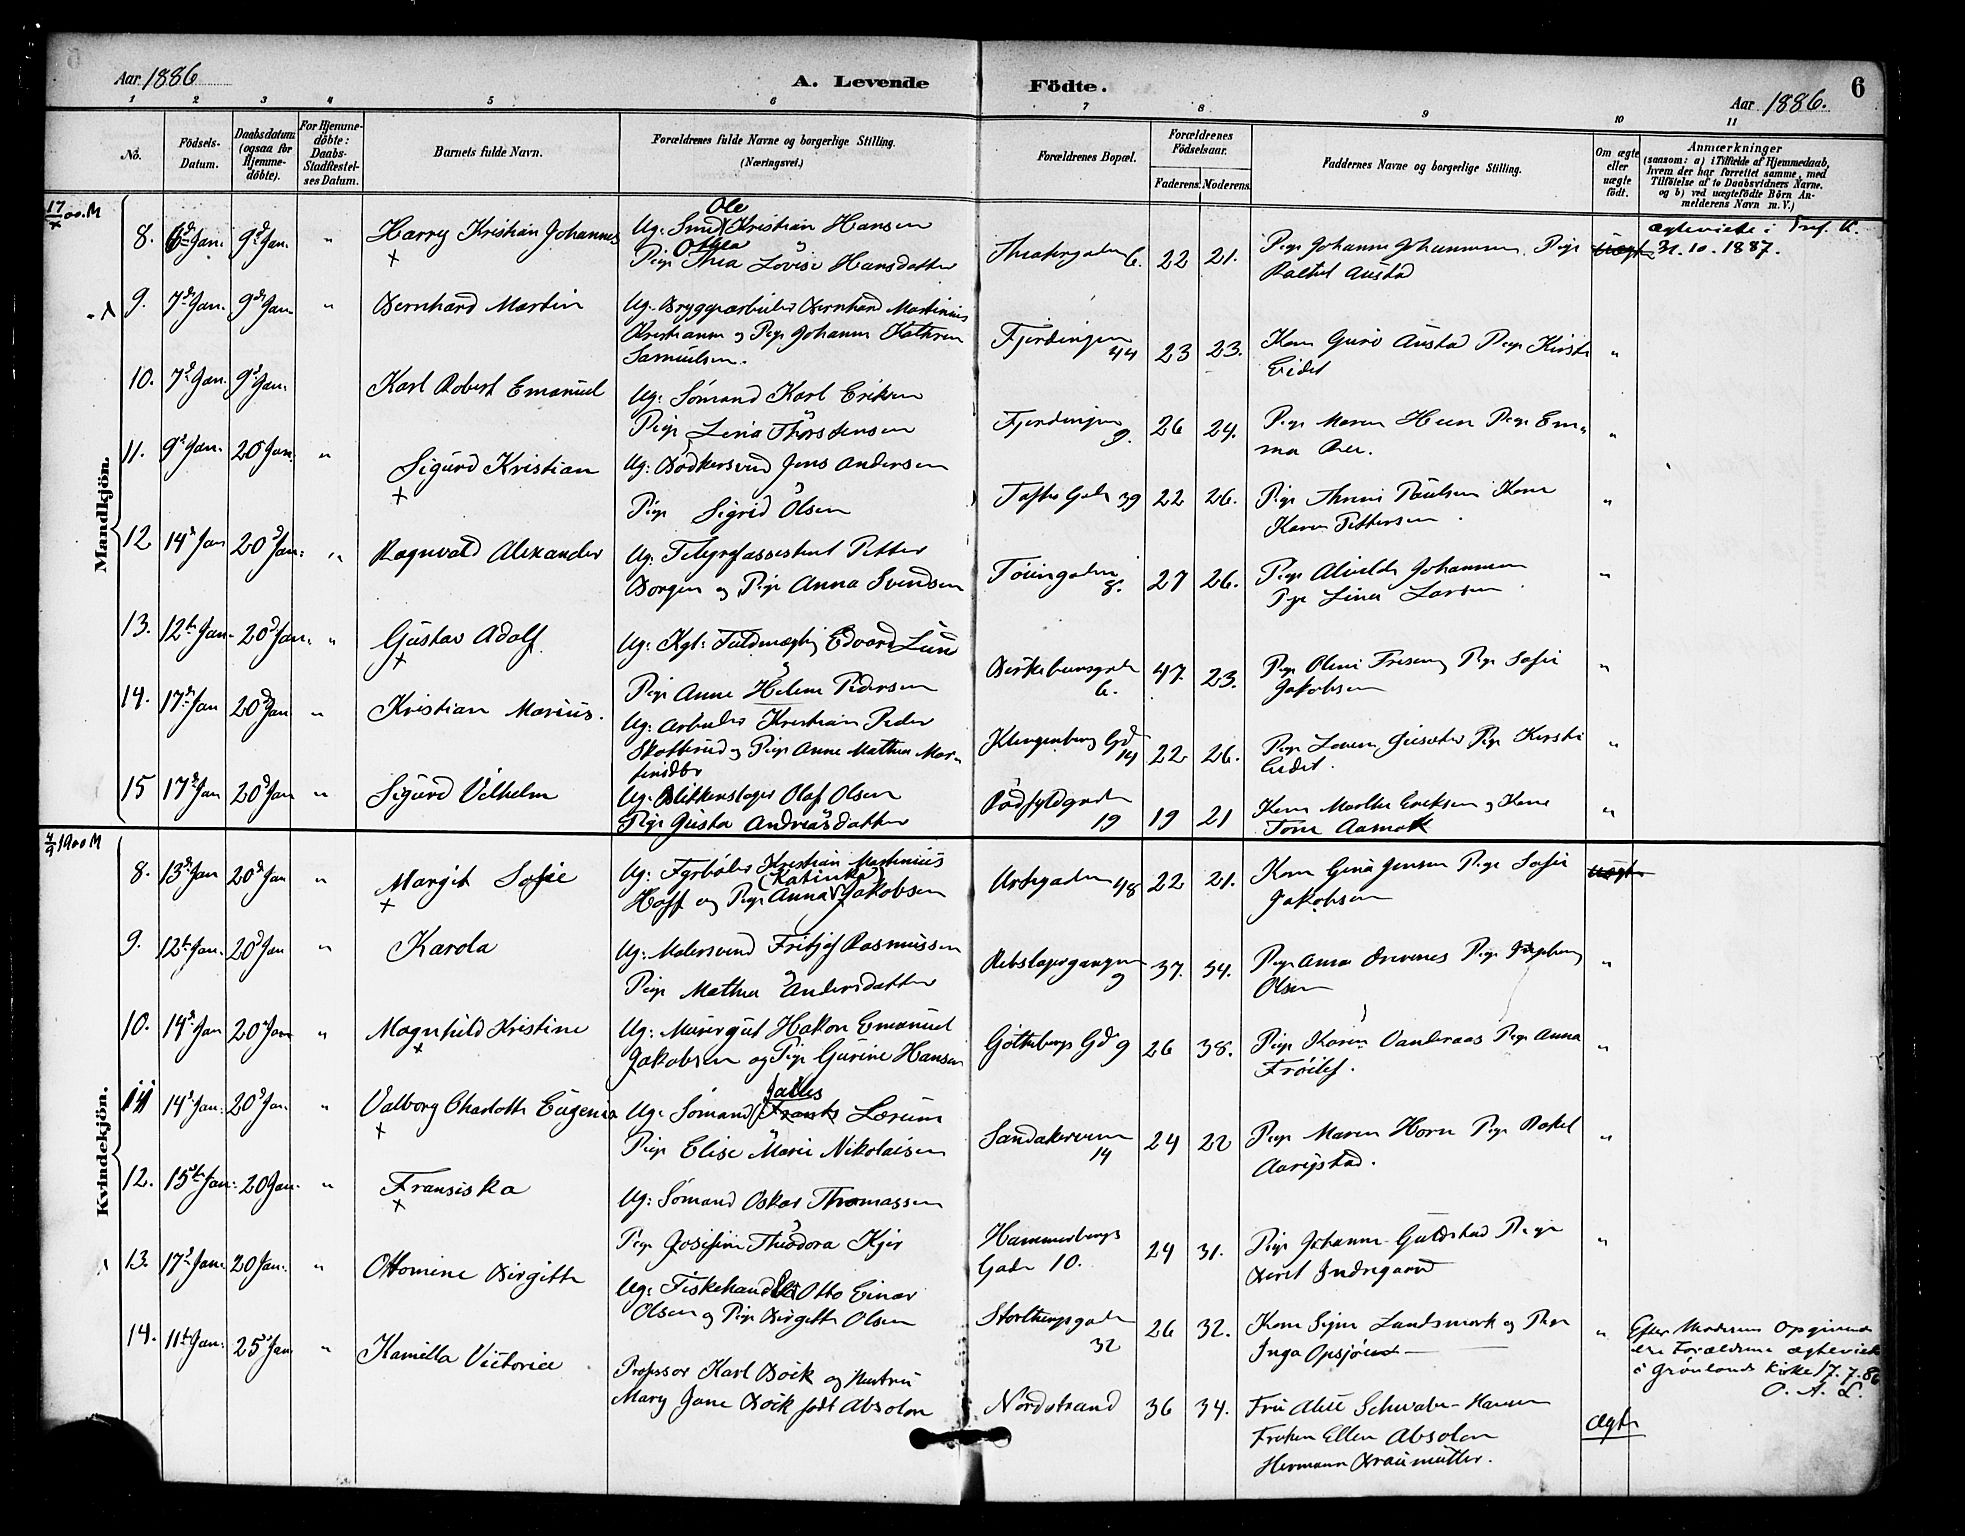 Aar 1886
A. Levende Födte.
Aar 1886.
6
1 2 3 4 5 6 7 8 9 10 11
No.
Födsels-Datum.
Daabsdatum (ogsaa for Hjemme-döbte).
For Hjemme-döbte: Daabs-Stadfæstel-ses Datum.
Barnets fulde Navn.
Forældrenes fulde Navne og borgerlige Stilling.
(Næringsvei.)
Forældrenes Bopæl.
Forældrenes Födselsaar.
Faderens. Moderens.
Faddernes Navne og borgerlige Stilling.
Om ægte eller uægte födt.
Anmærkninger
(saasom: a) i Tilfælde af Hjemmedaab,
hvem der har forrettet samme, med
Tilföielse af to Daabsvidners Navne,
og b) ved uægtefödte Börn An-
melderens Navn m. V.)
Mandkjön.
8. 6 Jan. 9 Jan. " Harry Kristian Johannes
Ug. Smed Ole Kristian Hansen
Pige Othea Thea Lovise Hansdatter
Theatergaden 6. 22 21.
Pige Johanne Johannesen Pige
Rakel Austad
Uægte
ægteviede i Tref. K.
31. 10. 1887.
9. 7de Jan. 9de Jan. " Bernhard Martin
Ug. Bryggearbeider Bernhard Martinius
Kristiansen og Pige Johanne Kathrin
Samuelsen.
Fjerdingen 44 23 23.
Kone Guro Austad Pige Kirsti
Eidet "
10. 7de Jan. 9de Jan. Karl Robert Emanuel
Ug: Sömand Karl Eriksen
Pige Lina Thorstensen
Fjerdingen 9. 26 24.
Pige Maren Heen Pige Em-
ma "
11. 9de Jan. 20 Jan. " Sigurd Kristian
Ug: Bödkersvend Jens Andersen
Pige Sigrid Olsen
Toftes Gade 39 22 26.
Pige Paulsen Kone
Karen Pettersen "
12 14de Jan 20de Jan. " Ragnvald Alexander
Ug: Telegrafassistent Petter
Borgen og Pige Anna Svendsen
Töiengaden 8. 27 26.
Pige Alvilde Johannesen
Pige Lina Larsen "
13. 12te Jan. 20de Jan. " Gustav Adolf
Ug: Kgl: Fuldmægtig Edvard Lund
Pige Anne Helene Pedersen
Birkelunsgaden 6. 47. 23.
Pige Oleni Pige Sofie
Jakobsen "
14. 17de Jan 20de Jan " Kristian Marius.
Ug: Arbeider Kristian Peder
Skotterud og Pige Anne Mathea Mar-
tinidtr
Klingenberg Gd 14 22 26.
Pige Pige Kirsti
Eidet. "
15 17de Jan 20de Jan " Sigurd Vilhelm
Ug. Blikkenslager Olaf Olsen
Pige Gusta Andreasdatter
Rödfyldgaden 19 19 21
Kone Marthe Eriksen og Kone
Tone Aamot "
Kvindekjön.
8. 13de Jan 20de Jan " Margit Sofie
Ug: Fyrböder Kristian Martinius
Hoff og Pige Anna (Katinka) Jakobsen
Urtegaden 48 22 21.
Kone Gina Jensen Pige Sofie
Jakobsen Uægte
9. 12te Jan. 20de Jan " Karola
Ug: Malersvend Fritjof Rasmussen
Pige Mathea Andersdatter
Rebslagergangen 9 37. 34.
Pige Anna Pige Ingeborg
Olsen "
10. 14de Jan 20de Jan " Magnhild Kristine
Ug: Murergut Hakon Emanuel
Jakobsen og Pige Gurine Hansen
Götteborgs Gd 9 26 38.
Pige Karen Vanderaas Pige Anna
"
11 14de Jan. 20de Jan. " Valborg Charlotte Eugenia
Ug: Sömand Frants Lærum
Pige Elise Marie Nikolaisen
Sandakerveien 14 24 22
Pige Maren Horn Pige Rakel
"
12. 15te Jan. 20 Jan. " Fransiska
Ug: Sömand Oskar Thomassen
Pige Josefine Theodora Kjer
Hammerborgs
Gade 10. 24 31.
Pige Johanne Guldstad Pige
Beret Indregaard "
13. 17de Jan. 20 Jan. " Ottomine Birgitte
Ug: Fiskehandler Otto Einar
Olsen og Pige Birgitte Olsen
Storthingsgaden
32 26 32.
Kone Signe Landsmark og Pige
Inga Opsjön "
Efter Moderens Opgivende
ere Forældrene ægteviede
i Grönlands Kirke 17.7.86
O. A. L.
14. 11te Jan. 25de Jan " Kamilla Victoria
Professor Karl Böik og Hustru
Mary Jane Böik födt Absolon
Nordstrand 36 34.
Fru Alice Schwabe-Hansen
Fröken Ellen Absolon
Hermann Braumüller.
Ægte